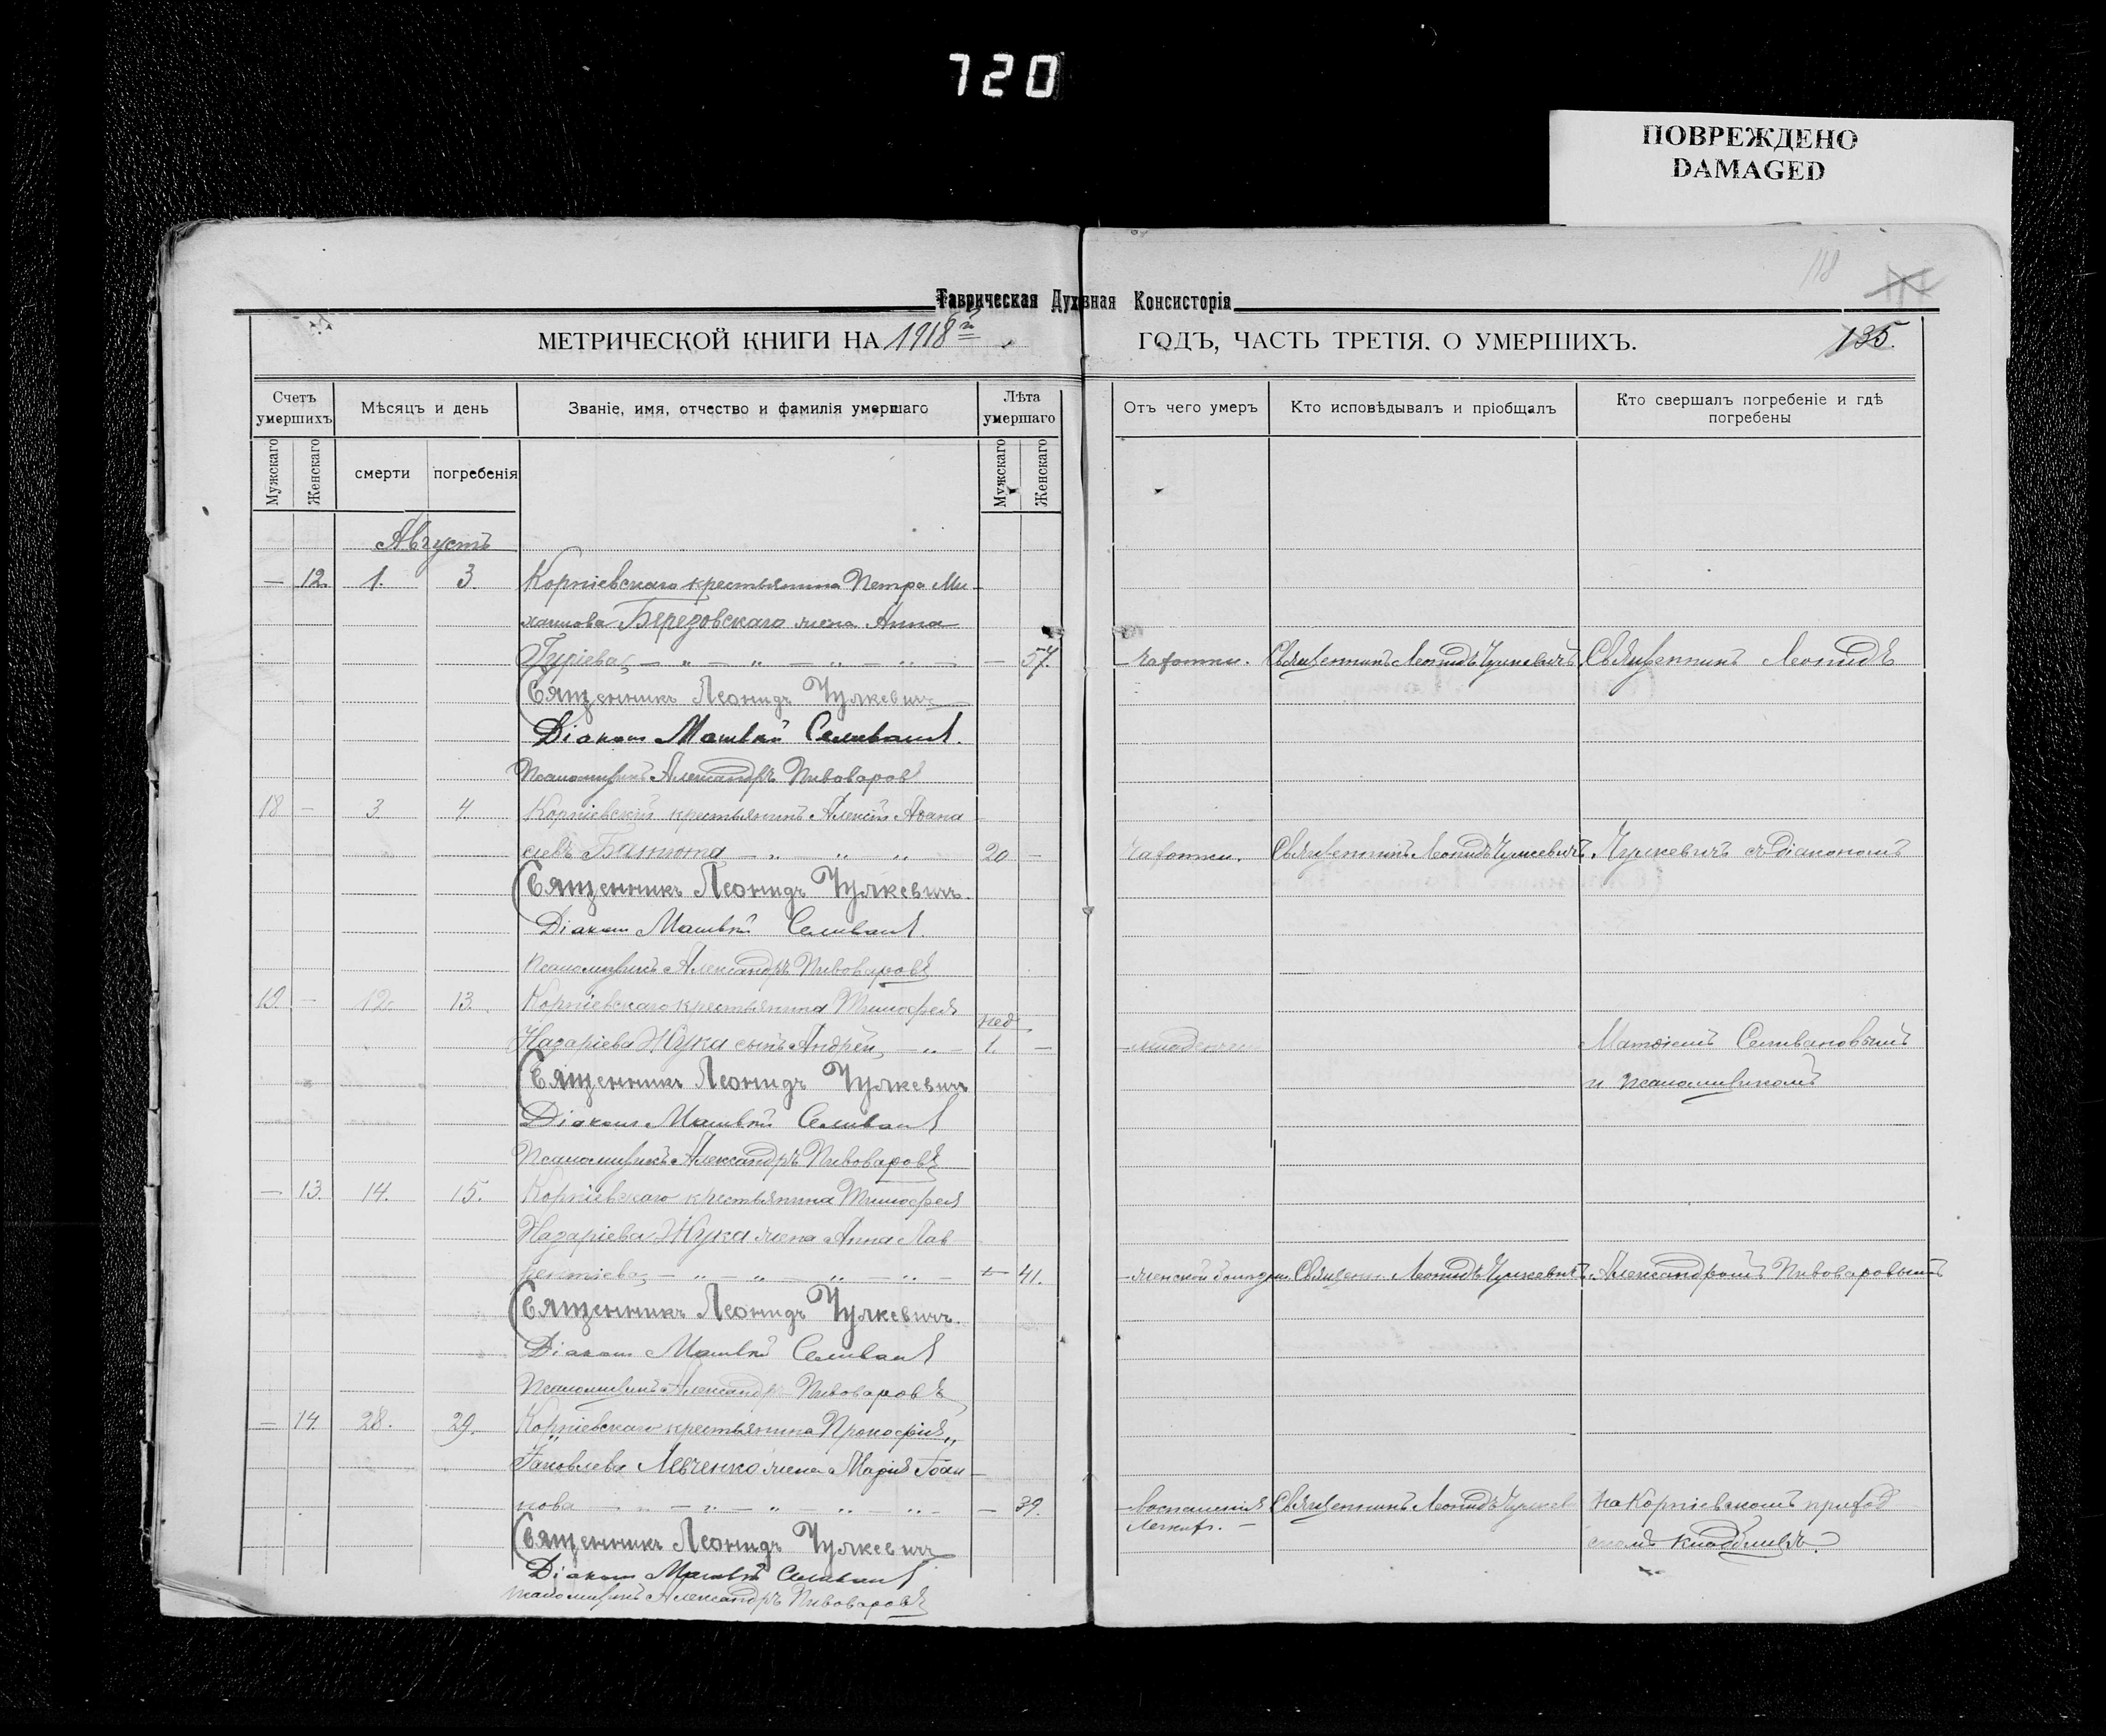 720
ПОВРЕЖДЕНО
DAMAGED
118
Таврическая Духовная Консисторія
МЕТРИЧЕСКОЙ КНИГИ НА 1918й ГОДЪ, ЧАСТЬ ТРЕТІЯ, О УМЕРШИХЪ.
135.
Счетъ умершихъ
Мѣсяцъ и день
Званіе, имя, отчество и фамилія умершаго
Лѣта умершаго
Отъ чего умеръ
Кто исповѣдывалъ и пріобщалъ
Кто свершалъ погребеніе и гдѣ погребены
Мужскаго
Женскаго
смерти
погребенія
Мужскаго
Женскаго
Августъ
— 12. 1. 3. Корніевскаго крестьянина Петра Ми-
хаилова Березовскаго жена Анна
Гуріева, — 57. чахотки. Священникъ Леонидъ Чулкевичъ. Священникъ Леонидъ
Священникъ Леонидъ Чулкевичъ.
Діаконъ Матѳей Селивановъ.
Псаломщикъ Александръ Пивоваровъ
18 — 3. 4. Корніевскій крестьянинъ Алексій Аѳана
сіевъ Батюта 20 — чахотки. Священникъ Леонидъ Чулкевичъ. Чулкевичъ съ діакономъ
Священникъ Леонидъ Чулкевичъ.
Діаконъ Матѳей Селивановъ.
Псаломщикъ Александръ Пивоваровъ
19. — 12. 13. Корніевскаго крестьянина Тимофея
нед.
Назаріева Жука сынъ Андрей, 1. — Матѳіемъ Селивановымъ
Священникъ Леонидъ Чулкевичъ и псаломщикомъ
Діаконъ Матѳей Селивановъ
Псаломщикъ Александръ Пивоваровъ
— 13. 14. 15. Корніевскаго крестьянина Тимофея
Назаріева Жука жена Анна Лав
рентіева, — 41. женской болѣзни Священ. Леонидъ Чулкевичъ. Александромъ Пивоваровымъ
Священникъ Леонидъ Чулкевичъ.
Діаконъ Матѳей Селивановъ
Псаломщикъ Александръ Пивоваровъ
— 14. 28. 29. Корніевскаго крестьянина Прокофія
Іаковлева Левченко жена Марія Іоан-
нова — 39. воспаленія Священникъ Леонидъ Чулкев на Корніевскомъ приход
легкихъ. — скомъ кладбищѣ.
Священникъ Леонидъ Чулкевичъ
Діаконъ Матѳей Селивановъ
псаломщикъ Александръ Пивоваровъ